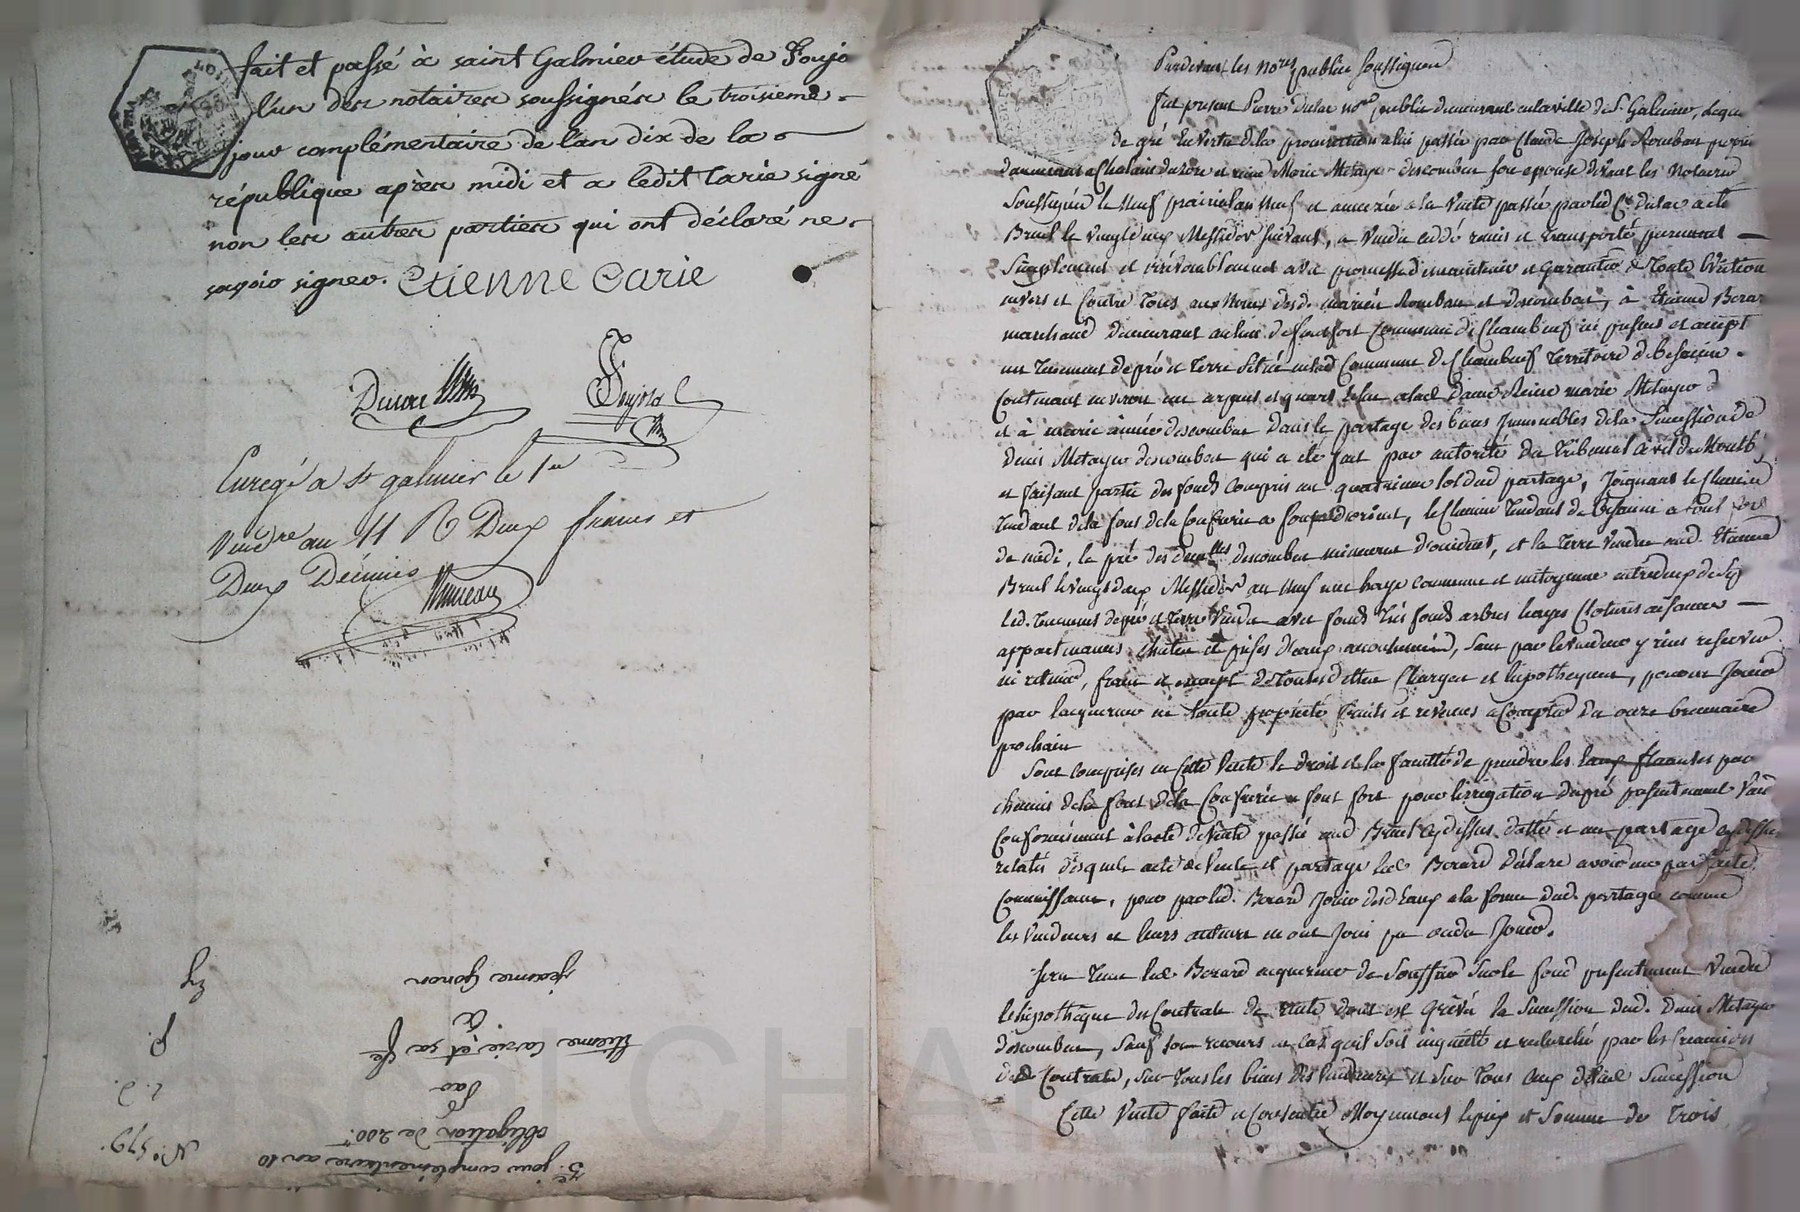 fait et passé à saint Galmier étude de Joujo
l'un des notaires soussignés le troisieme
jour complémentaire de l'an dix de la
république après midi et a ledit Carie signé
non les autres parties qui ont déclaré ne
savoir signer. Etienne Carie
Enregé a st galmier le 1er
vendre an 11 R Deux francs et
Deux Décimes
jeanne gonon
à
etienne carie, et sa fe
Par
obligation de 200
3e jour complémentaire an 10
N° 579.
Pardevant les nores publics soussignés
fut present Pierre Dulac nore public demeurant en la ville de St Galmier, lequel
de gré en vertu de la procuration a lui passée par Claude Joseph Rombau
demeurant a Chalain et reine Marie Metayer descombes son epouse devant les Notaires
Soussignés le neuf prairial an neuf et annexée a la Vente passée par led Cn dulac acte
Bruel le vingt deux Messidor suivant, a vendu cédé remis et transporté purement
simplement et irrévocablement avec promesse de maintenir et garantir de toute Eviction
envers et contre tous aux noms desd. mariés Rombau et descombes, à Etienne Berar
marchand demeurant au lieu de fontfort Commune de Chambœuf ici présent et accept
un Tenement de pré et Terre Situé en lad Commune de Chambœuf territoire de
Contenant environ un arpent et quart echu a lad dame Reine marie Metayer d
et à marie aimée descombes dans le partage des biens Immeubles de la Succession de
denis Metayer descombes qui a été fait par autorité du Tribunal Civil de Montb
et faisant partie des fonds compris au quatrieme lot dud partage, Joignant le Chemin
tendant de la font de la Confrerie a d'orient, le Chemin tendant de a
de midi, le pré des demlles descombes mineures d'occident, et la Terre vendue aud. Etienne
Bruel le vingt deux Messidor an neuf une haye commune et mitoyenne entre deux
Led. Tenement de pré et terre vendu avec fonds très fonds arbres hayes Clotures aisances
appartenances et prises d'eaux accoutumées, sans par le vendeur y rien reserver
ni retenir, franc et exempt de toutes dettes Charges et hipotheques, pour en Jouir
par l'acquereur en toute propriété fruits et revenus a compter du onze brumaire
prochain
Sont comprises en cette Vente le droit et la faculté de prendre les Eaux fluantes par
chemin de la font de la Confrerie a font fort pour l'irrigation du pré présentement
Conformément à l'acte de vente passé aud Bruel cy dessus datté et au partage cy dessus
relatés desquels acte de Vente et partage led Berard déclare avoir une parfaite
Connaissance, pour par led. Berard Jouir desd Eaux a la forme dud. partage comme
les Vendeurs et leurs auteurs en ont Joui pu ou du Jouir.
Sera tenu led Berard acquereur de Souffrir sur le fond présentement Vendu
l'hipotheque des Contrats de rente dont est grévée la Succession dud. Denis Metayer
descombes, sauf son recours en cas qu'il soit inquiété et recherché par les Creanciers
desd Contrats, sur tous les biens des Vendeurs et sur tous ceux de lad Succession
Cette Vente faite et Consentie Moyennant le prix et Somme de Trois